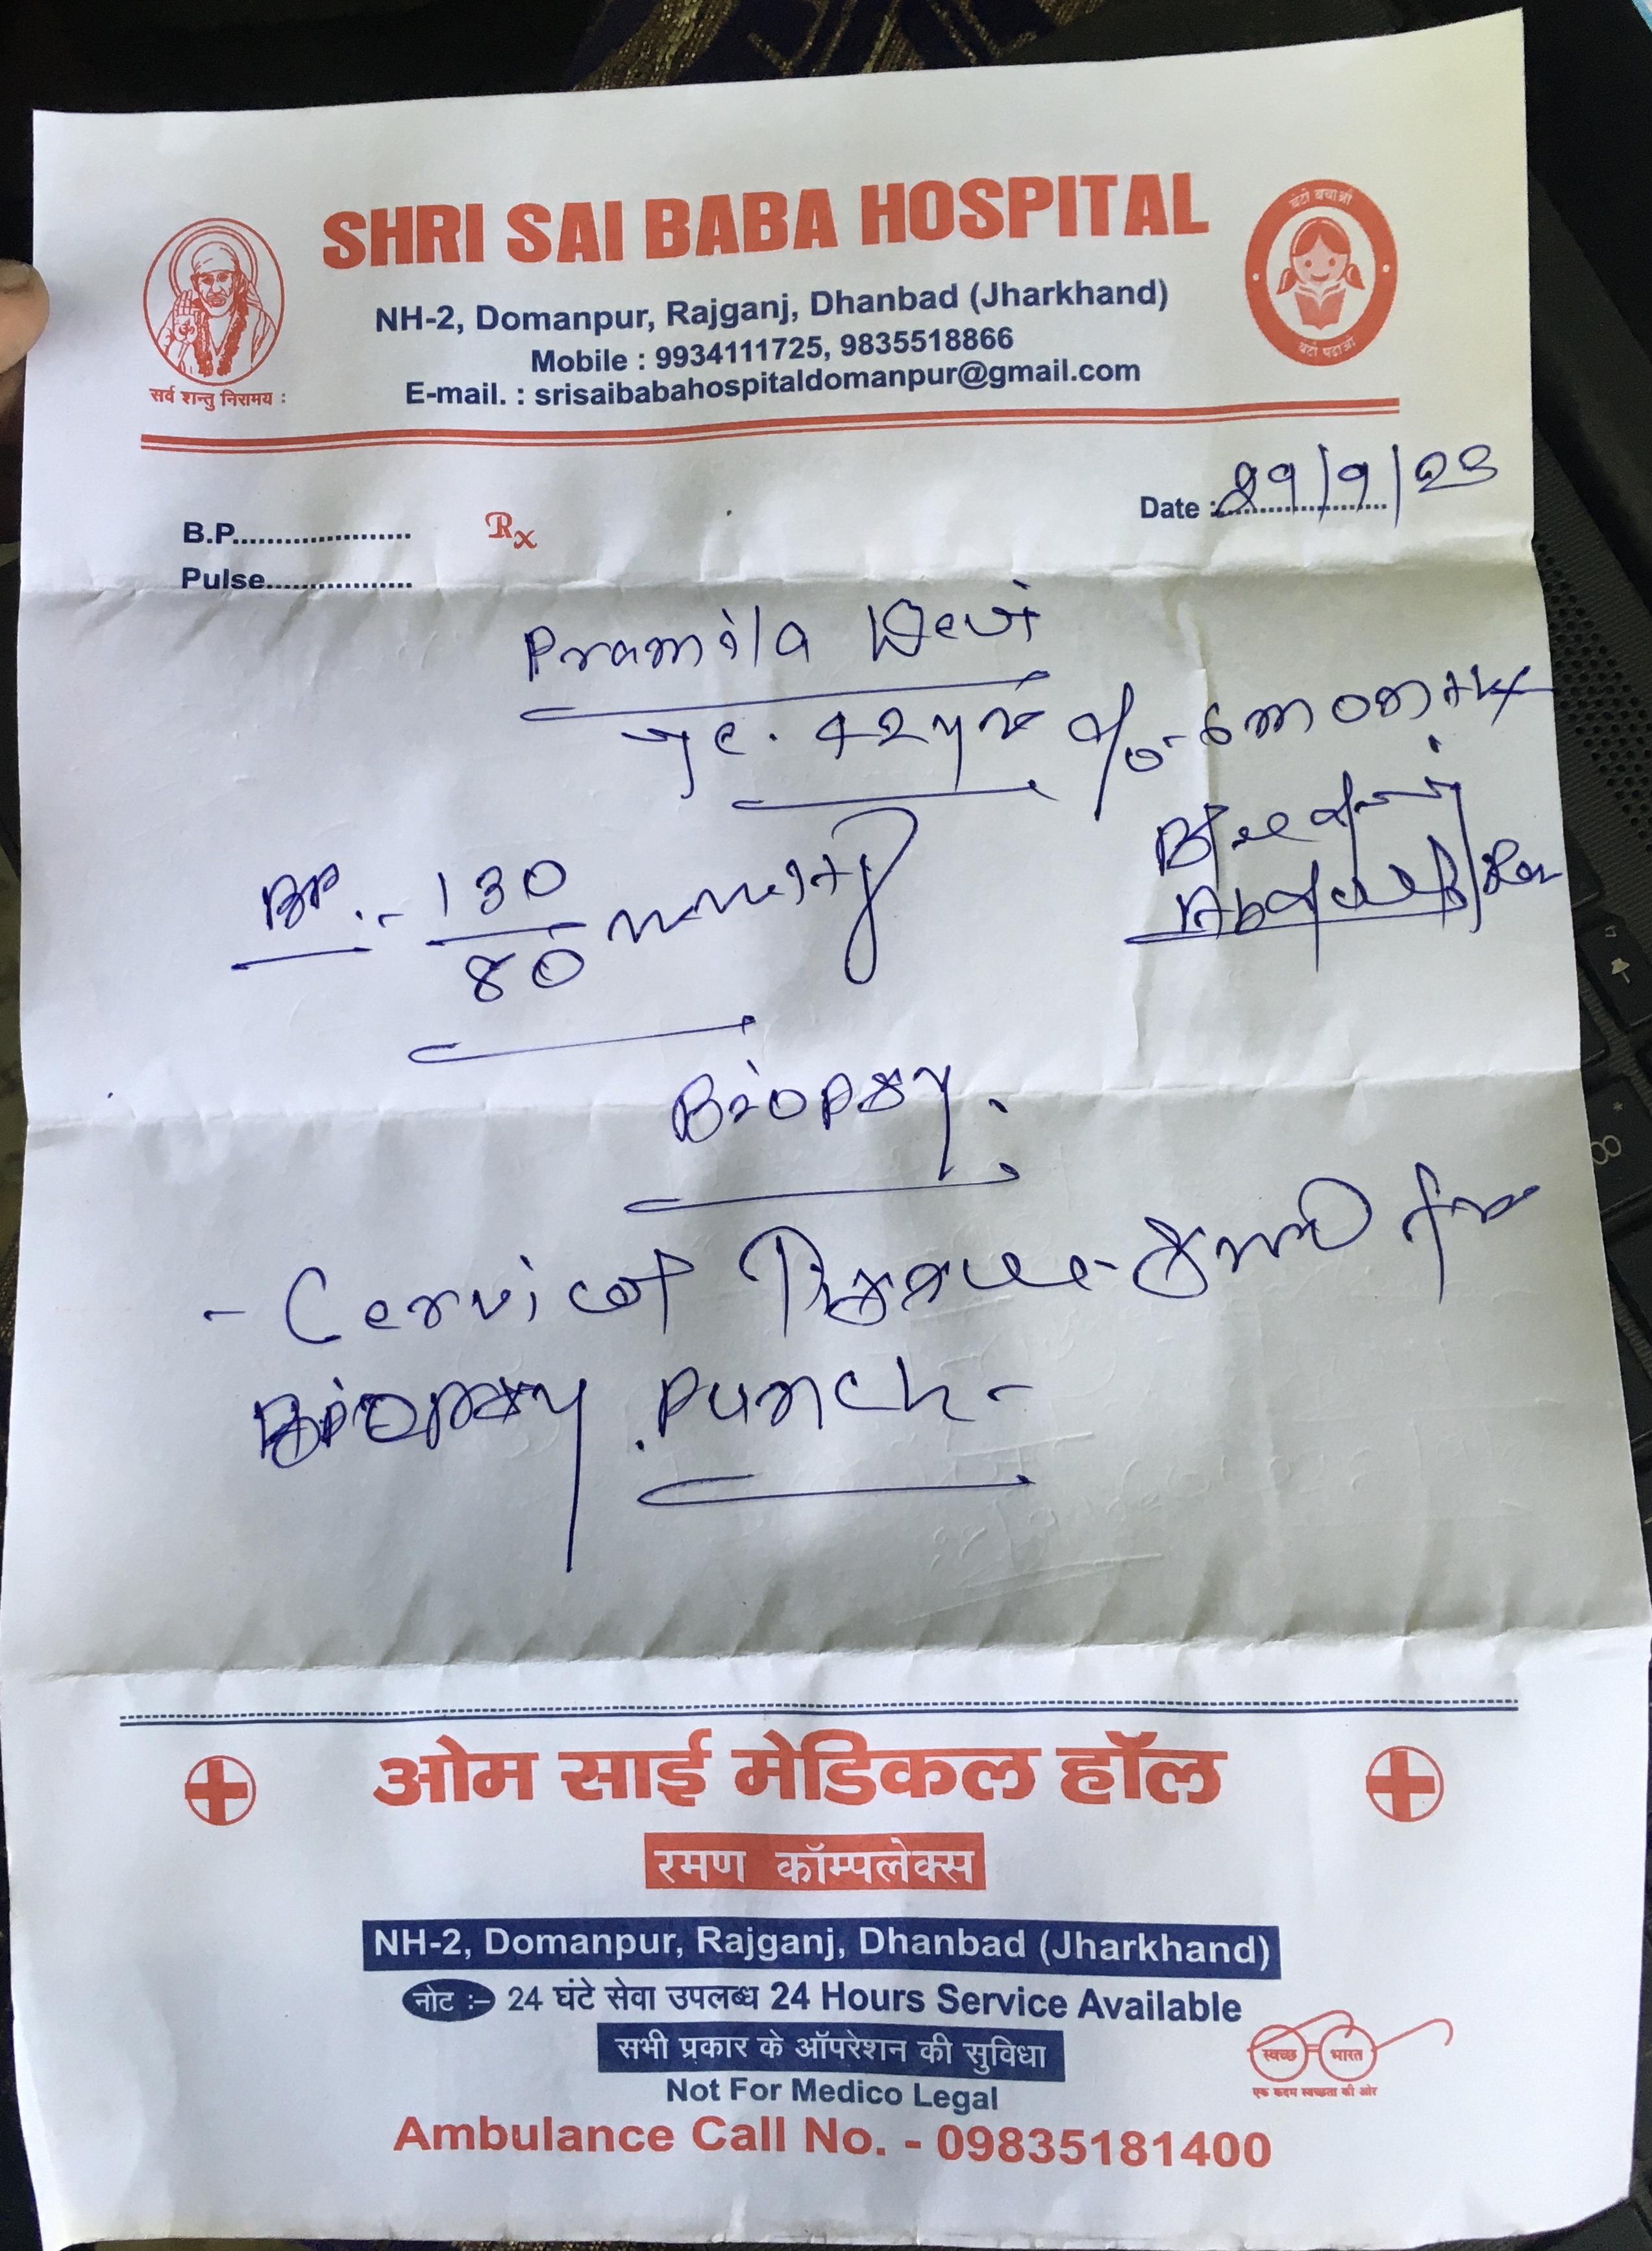 SHRI SAI BABA HOSPITAL
NH-2, Domanpur, Rajganj, Dhanbad (Jharkhand)
Mobile : 9934111725, 9835518866
E-mail. : srisaibabahospitaldomanpur@gmail.com
सर्व शन्तु निरामय :
बेटी बचाओ
बेटी पढ़ाओ
B.P.....................
Rx
Date : 29/9/23
Pulse.................
Pramila Devi
42 yr c/o - 6 month
Bleeding
BP. - 130/80 mmHg
Biopsy.
- Cervical Tissue - Send for
Biopsy . Punch -
ओम साई मेडिकल हॉल
रमण कॉम्पलेक्स
NH-2, Domanpur, Rajganj, Dhanbad (Jharkhand)
नोट :- 24 घंटे सेवा उपलब्ध 24 Hours Service Available
सभी प्रकार के ऑपरेशन की सुविधा
स्वच्छ भारत
एक कदम स्वच्छता की ओर
Not For Medico Legal
Ambulance Call No. - 09835181400